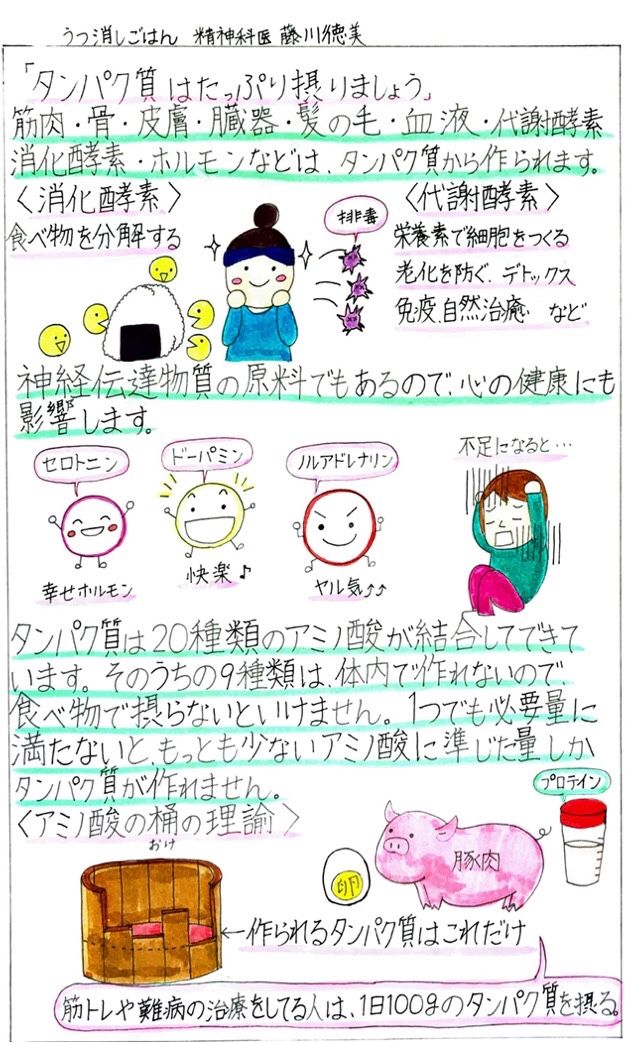 うつ消しごはん 精神科医 藤川徳美
「タンパク質はたっぷり摂りましょう」
筋肉・骨・皮膚・臓器・髪の毛・血液・代謝酵素
消化酵素・ホルモンなどは、タンパク質から作られます。
〈消化酵素〉
食べ物を分解する
排毒
〈代謝酵素〉
栄養素で細胞をつくる
老化を防ぐ、デトックス
免疫、自然治癒 など
神経伝達物質の原料でもあるので、心の健康にも
影響します。
セロトニン
幸せホルモン
ドーパミン
快楽♪
ノルアドレナリン
ヤル気↑↑
不足になると…
タンパク質は20種類のアミノ酸が結合してできて
います。そのうちの9種類は、体内で作れないので、
食べ物で摂らないといけません。1つでも必要量に
満たないと、もっとも少ないアミノ酸に準じた量しか
タンパク質が作れません。
〈アミノ酸の桶の理論〉
おけ
プロテイン
卵
豚肉
←作られるタンパク質はこれだけ
筋トレや難病の治療をしてる人は、1日100gのタンパク質を摂る。